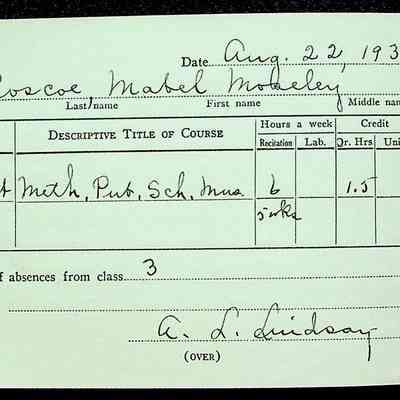 Date Aug. 22, 193
Roscoe, Mabel Moseley
Last name First name Middle nam
DESCRIPTIVE TITLE OF COURSE Hours a week Credit
Recitation Lab. Qr. Hrs Uni
t Meth. Pub. Sch. Mus. 6 1.5
5 wks
f absences from class 3
A. L. Lindsay
(OVER)